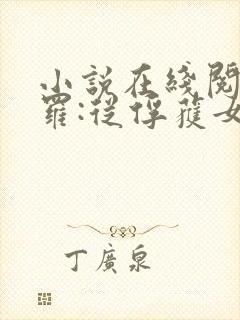 小說在綫閱
羅:從俘獲女
丁廣泉